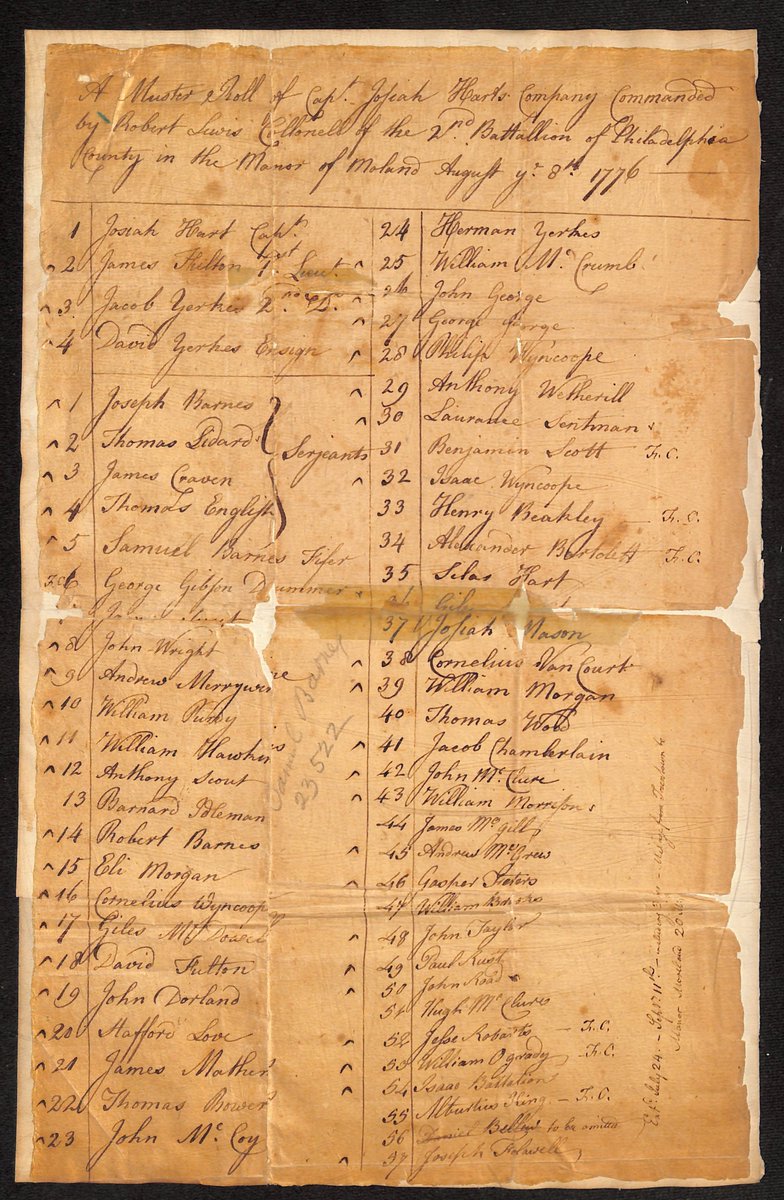 A Muster Roll of Capt. Josiah Harts Company Commanded
by Robert Lewis Collonell of the 2nd Battallion of Philadelphia
County in the Manor of Moland August ye 8th 1776
1 Josiah Hart Capt
^ 2 James Hilton 1st Lieut.
^ 3 Jacob Yerkes 2nd D.
^ 4 David Yerkes Ensign
^ 1 Joseph Barnes
^ 2 Thomas Didard
Serjeants
^ 3 James Craven
^ 4 Thomas English
^ 5 Samuel Barnes Fifer
F.C. 6 George Gibson Drummer
^ 8 John Wright
^ 9 Andrew Merrywine
^ 10 William Purdy
^ 11 William Hawkins
^ 12 Anthony Scout
13 Barnard Idleman
^ 14 Robert Barnes
^ 15 Eli Morgan
^ 16 Cornelius Wyncoop
^ 17 Giles Mc Dowel
^ 18 David Fulton
^ 19 John Dorland
^ 20 Stafford Love
^ 21 James Mather
^ 22 Thomas Bower
^ 23 John Mc Coy
24 Herman Yerkes
^ 25 William Mc Crumb
^ 26 John George
^ 27 George George
^ 28 Philip Wyncoope
29 Anthony Wetherill
^ 30 Laurance Sentman
31 Benjamin Scott F.C.
^ 32 Isaac Wyncoope
33 Henry Beakley F.C.
34 Alexander Bartolett F.C.
35 Silas Hart
36
37 Josiah Mason
^ 38 Cornelius VanCourt
^ 39 William Morgan
40 Thomas Wood
^ 41 Jacob Chamberlain
^ 42 John Mc Clure
^ 43 William Morrison
44 James Mc Gill
^ 45 Andrew Mc Grew
^ 46 Gasper Fetters
47 William
^ 48 John Taylor
^ 49 Paul Rust
^ 50 John Road
51 Hugh Mc Clure
^ 52 Jesse Robarts F.C.
^ 53 William Ogrady F.C.
^ 54 Isaac Battalion
55 Alburtius King F.C.
56 Daniel to be omitted
^ 57 Joseph Folwell
Samuel Barnes
23522
Extd July 24 - Sept 11th
Manor Moreland 20 M.